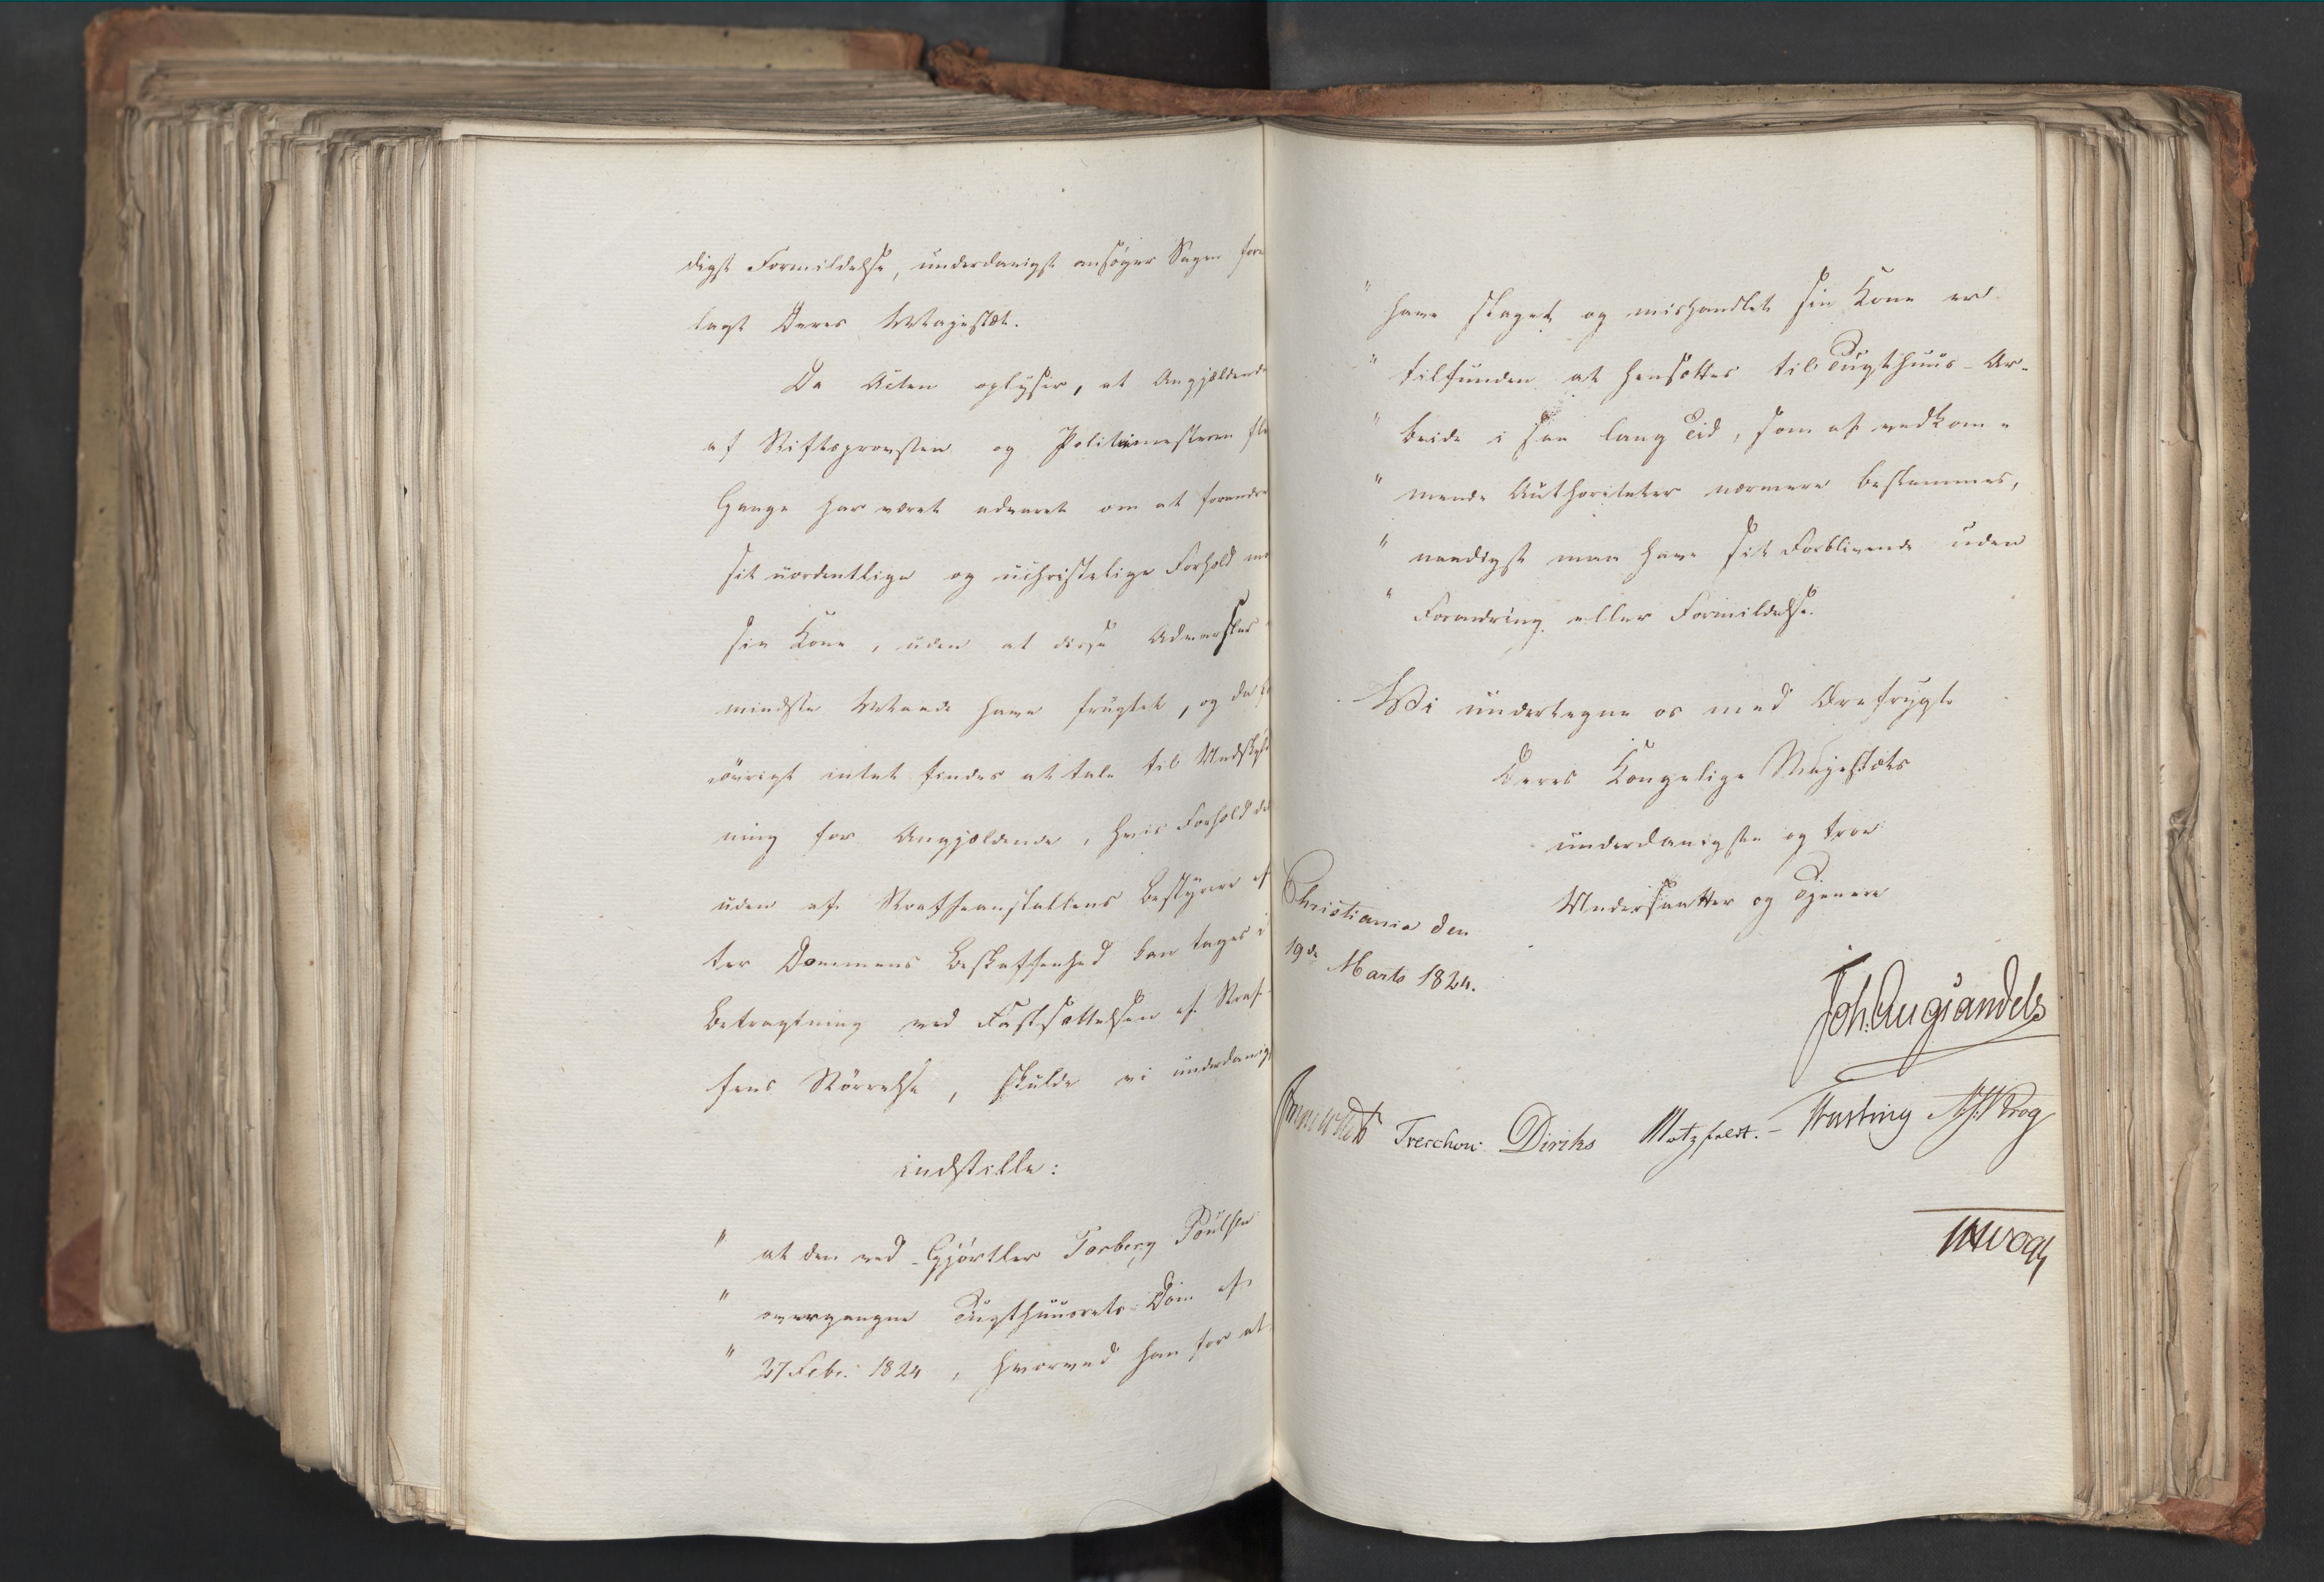 digst Formildelse, underdanigst ansøger Sagen fore
lagt Deres Majestæt.
Da Acten oplyser, at Angjældende
af Stiftsprovsten og Politimesteren fle
Gange har været advaret om at forandre
sit uordentlige og uchristelige Forhold mo
sin Kone, uden at disse Advarsler
mindste Maade have frugtet, og da
iøvrigt intet findes at tale til Undskyld
ning for Angjældende, hvis Forhold des
uden af Straffeanstaltens Bestyrere ef
ter Dommens Beskaffenhed kan tages i
Betragtning ved Fastsættelsen af Straf
fens Størrelse, skulde vi underdanigst
indstille:
" at den ved Gjørtler Torberg Poulsen
" overgangne Tugthuusrets-Dom af
" 27 Febr: 1824, hvorved han for at
" have slaget og mishandlet sin Kone er
" tilfunden at hensættes til Tugthuus-Ar-
" beide i saa lang Tid, som af vedkom-
" mende Authoriteter nærmere bestemmes,
" naadigst maa have sit Forblivende uden
" Forandring eller Formildelse.
Vi undertegne os med Ærefrygt
Deres Kongelige Majestæts
underdanigste og troe
Undersaatter og Tjenere
Christiania den
19de Marts 1824.
Joh. Aug Sandels
Sommerhielm Treschow Diriks Motzfeldt. Fasting Krog
Vogt